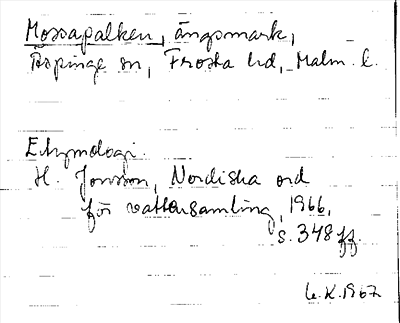 Mossapalken, ängsmark,
Äspinge sn, Frosta hd, Malm. l.
Etymologi.
H. Jonsson, Nordiska ord
för vattensamling, 1966,
s. 348 ff.
1967